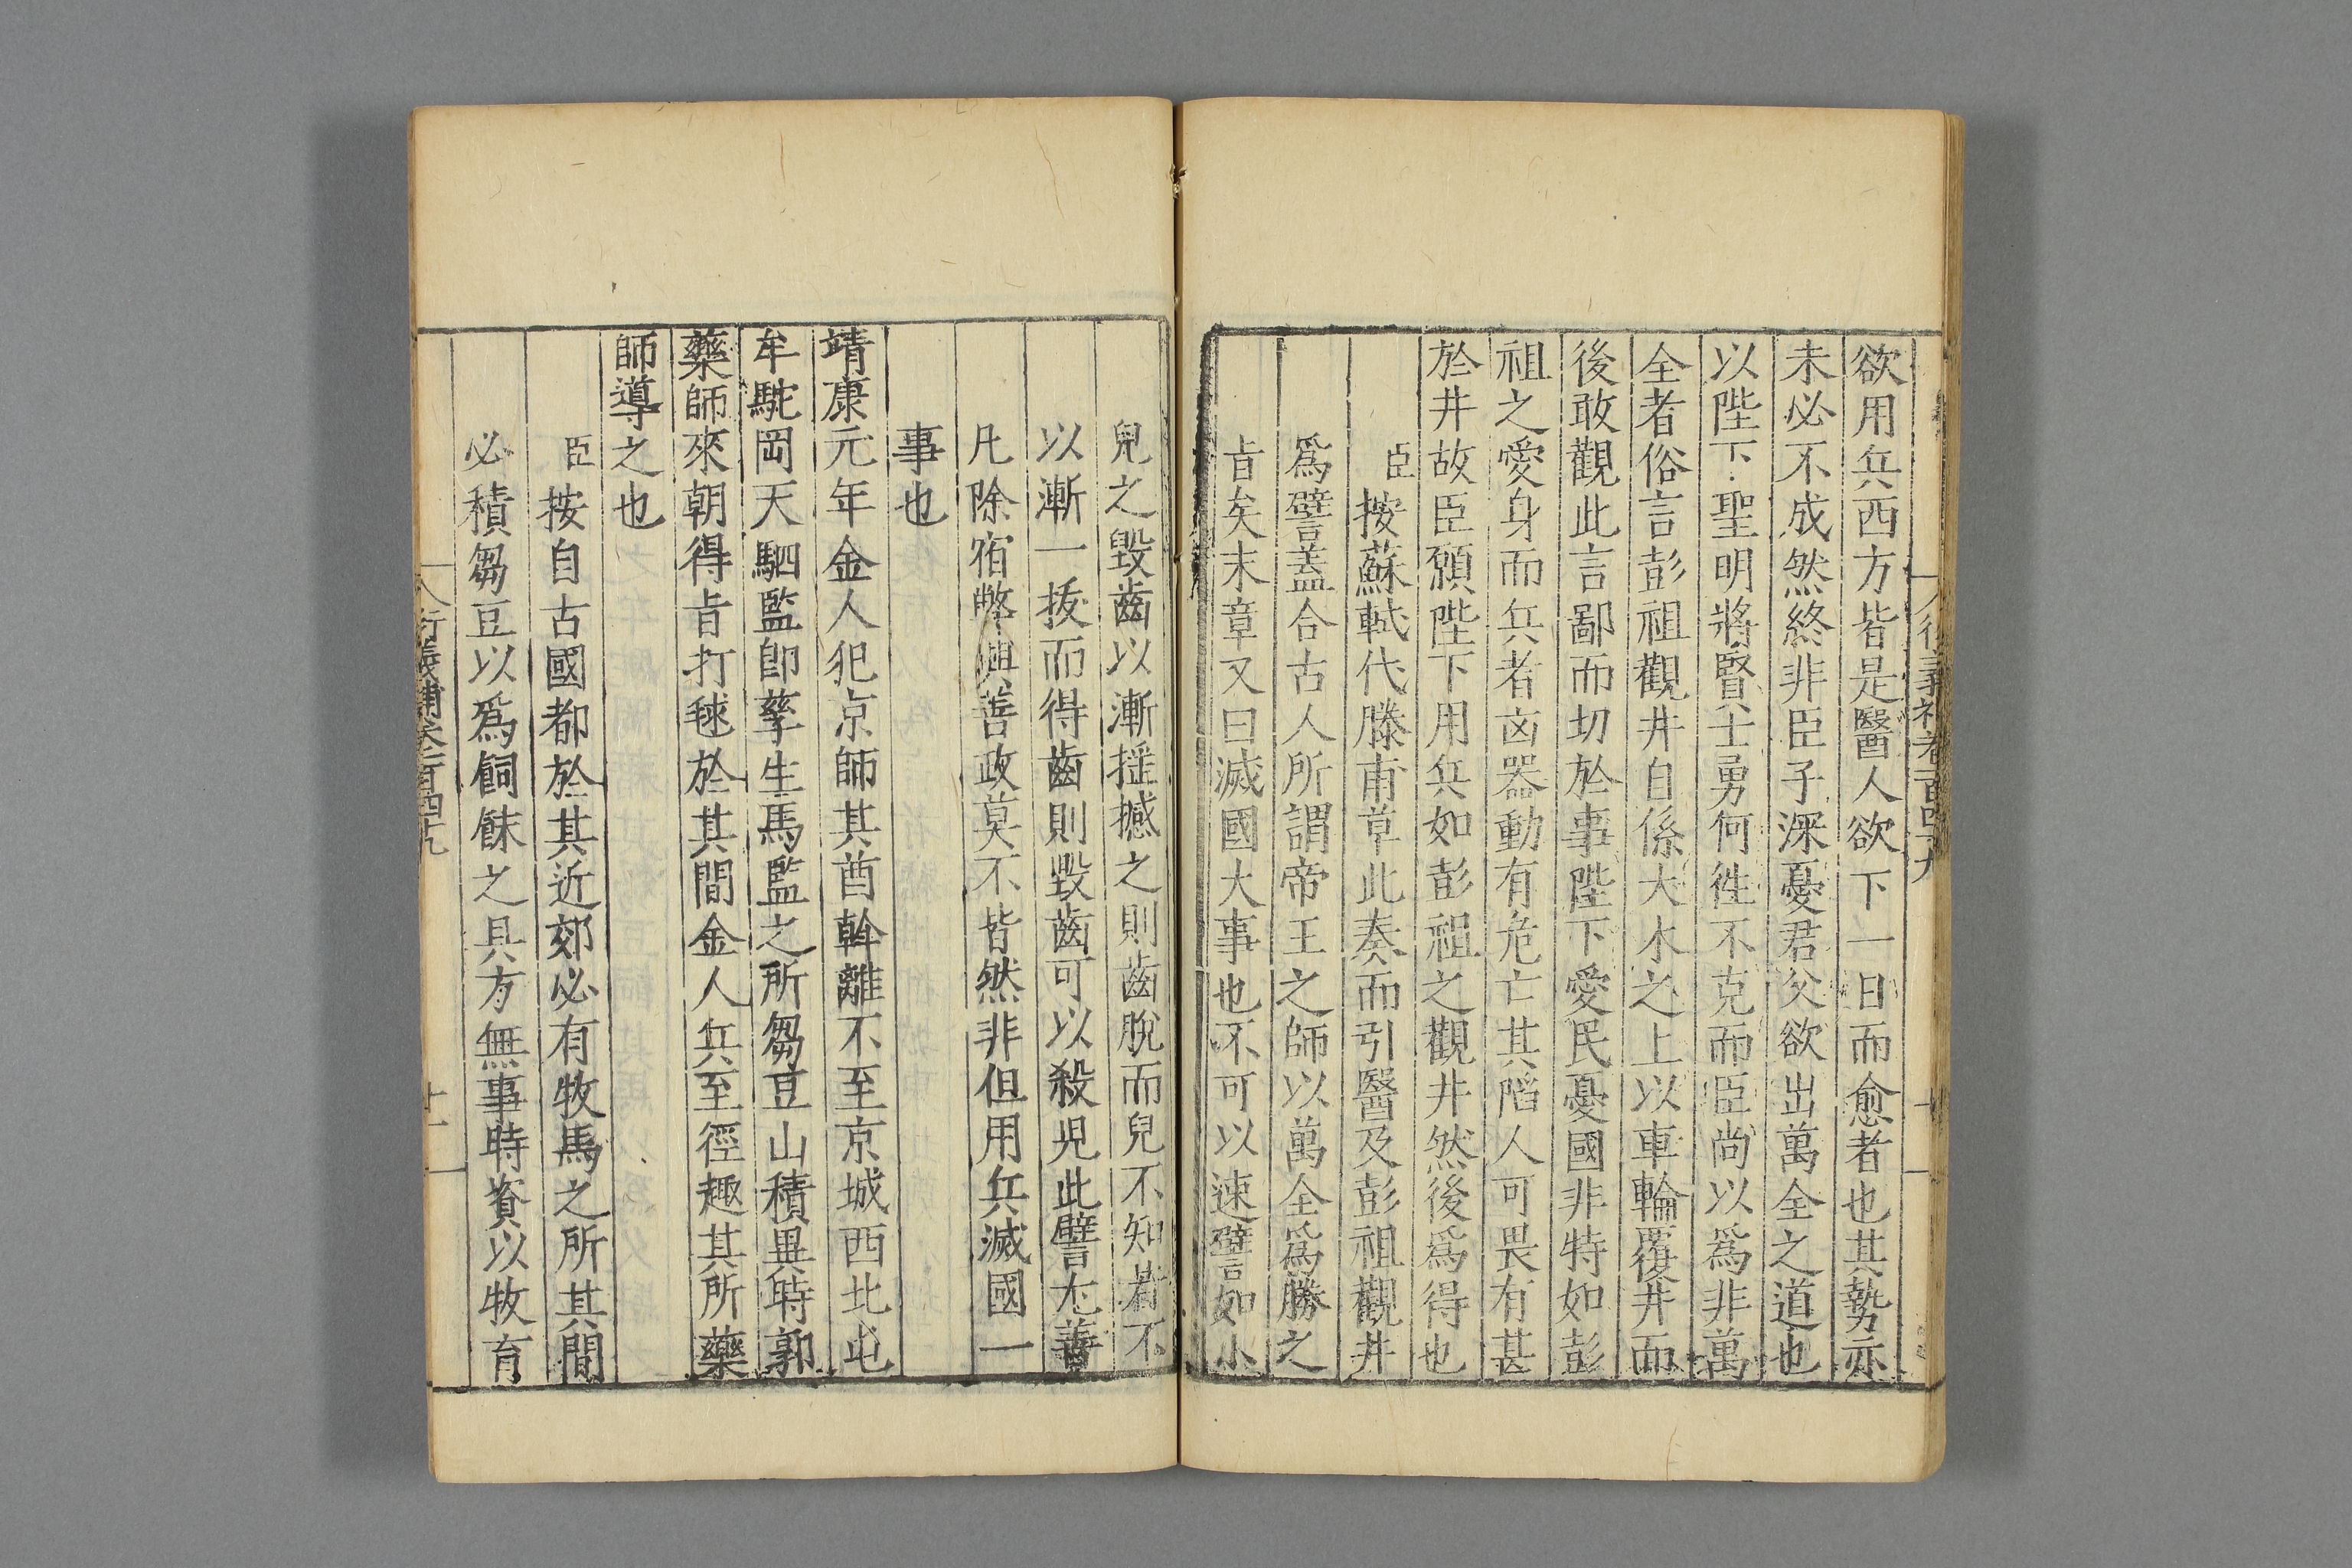 欲用兵西方皆是醫人欲下一日而愈者也其勢亦
未必不成然終非臣子深憂君父欲出萬全之道也
以陛下聖明將賢士勇何徃不克而臣尚以爲非萬
全者俗言彭祖觀井自係大木之上以車輪覆井而
後敢觀此言鄙而切於事陛下愛民憂國非特如彭
祖之愛身而兵者凶器動有危亡其陷人可畏有甚
於井故臣願陛下用兵如彭祖之觀井然後爲得也
臣按蘇軾代滕甫草此奏而引醫及彭祖觀井
爲譬蓋合古人所謂帝王之師以萬全爲勝之
㫖矣末章又曰滅國大事也不可以速譬如小
兒之毀齒以漸揺撼之則齒脫而兒不知若不
以漸一拔而得齒則毀齒可以殺児此譬尤善
凡除宿弊興善政莫不皆然非但用兵滅國一
事也
靖康元年金人犯京師其酋斡離不至京城西北屯
牟駝岡天駟監卽孳生馬監之所芻豆山積異時郭
藥師來朝得㫖打毬於其間金人兵至徑趣其所藥
師導之也
臣按自古國都於其近郊必有牧馬之所其間
必積芻豆以爲飼餗之具方無事時資以牧育
衍義補卷一百四十九
十一